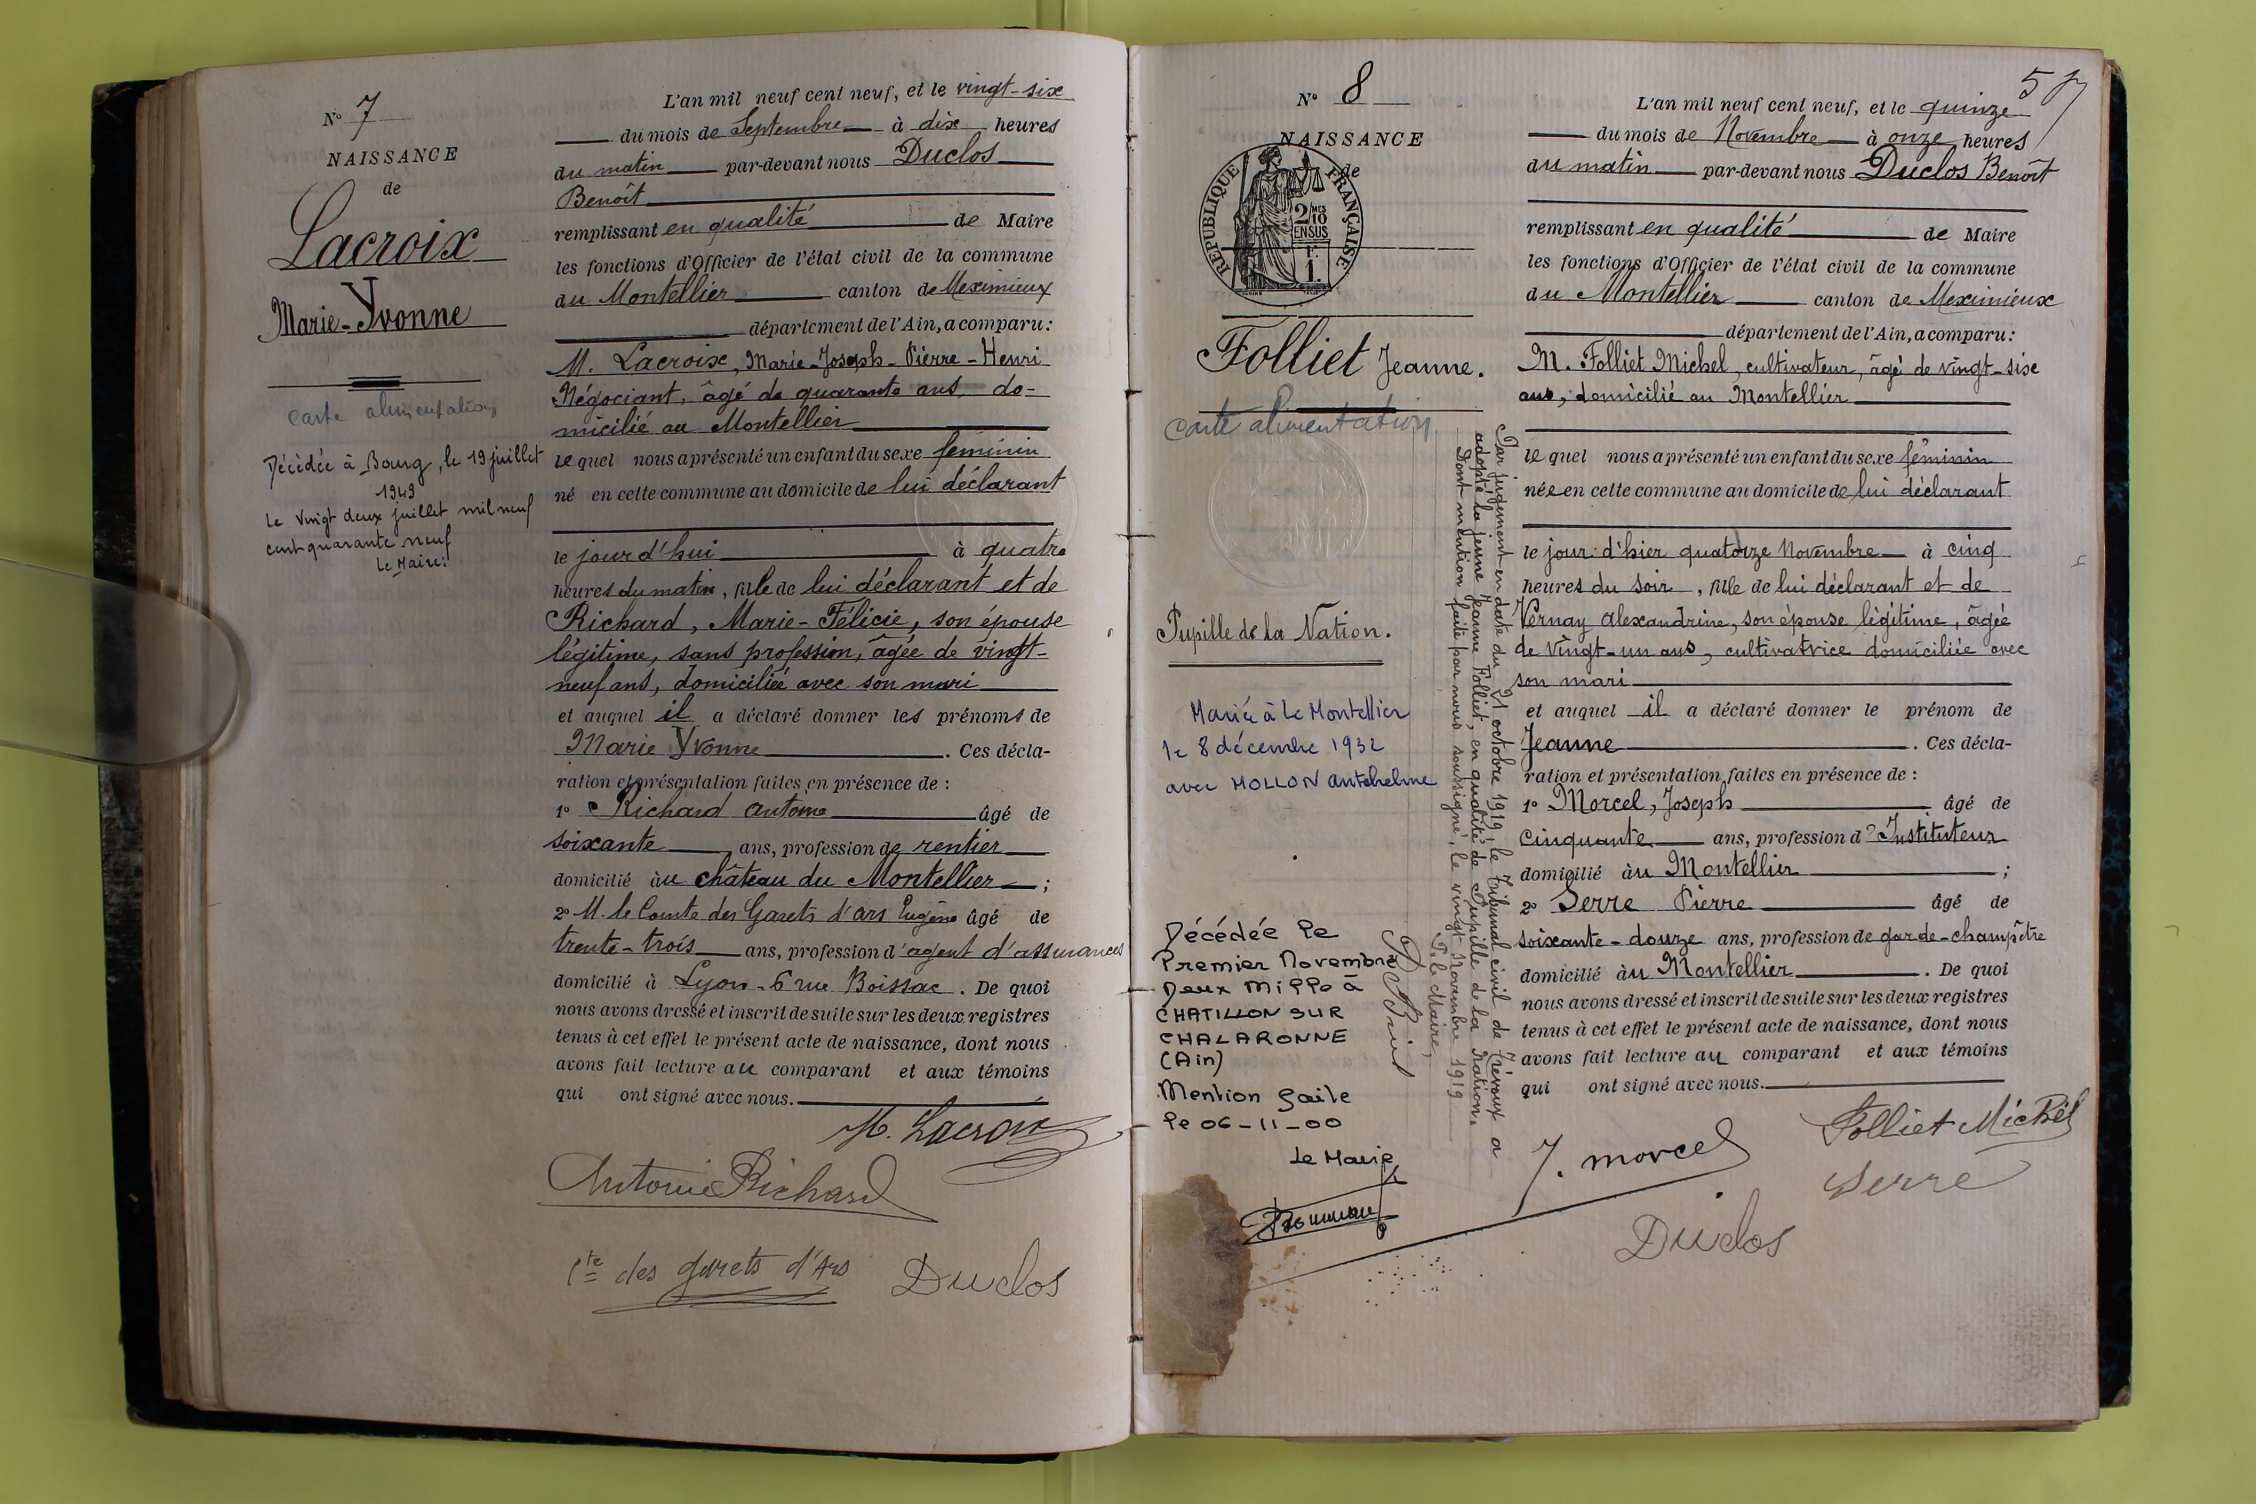 N° 7
NAISSANCE
de
Lacroix
Marie-Yvonne
Carte alimentation
Décédée à Bourg, le 19 juillet
1949
Le vingt deux juillet mil neuf
cent quarante neuf
Le Maire:
L'an mil neuf cent neuf, et le vingt-six
du mois de Septembre à dix heures
du matin par-devant nous Duclos
Benoît
remplissant en qualité de Maire
les fonctions d'Officier de l'état civil de la commune
du Montellier canton de Meximieux
département de l'Ain, a comparu:
M. Lacroix, Marie-Joseph-Pierre-Henri
Négociant, âgé de quarante ans, do-
micilié au Montellier
lequel nous a présenté un enfant du sexe féminin
né en cette commune au domicile de lui déclarant
le jour d'hui à quatre
heures du matin, fille de lui déclarant et de
Richard, Marie-Félicie, son épouse
légitime, sans profession, âgée de vingt-
neuf ans, domiciliée avec son mari
et auquel il a déclaré donner les prénoms de
Marie Yvonne. Ces décla-
ration et présentation faites en présence de :
1° Richard Antoine âgé de
soixante ans, profession de rentier
domicilié àu château du Montellier ;
2° M. le Comte des Garets d'ars Eugène âgé de
trente-trois ans, profession d'agent d'assurances
domicilié à Lyon - 6 rue Boissac. De quoi
nous avons dressé et inscrit de suite sur les deux registres
tenus à cet effet le présent acte de naissance, dont nous
avons fait lecture au comparant et aux témoins
qui ont signé avec nous.
H. Lacroix
Antoine Richard
Cte des Garets d'Ars Duclos
57
N° 8
NAISSANCE
de
RÉPUBLIQUE FRANÇAISE
2/10 MES
EN SUS
1 F.
Folliet Jeanne.
Carte alimentation
Pupille de la Nation.
Mariée à Le Montellier
le 8 décembre 1932
avec MOLLON Anthelme
Par jugement en date du 21 octobre 1919, le Tribunal civil de Trévoux a
adopté la jeune Jeanne Folliet, en qualité de Pupille de la Nation.
Dont mention faite par nous soussigné, le vingt Novembre 1919
P. le Maire,
Décédée le
Premier Novembre
Deux Mille à
CHATILLON SUR
CHALARONNE
(Ain)
Mention faite
le 06-11-00
Le Maire
L'an mil neuf cent neuf, et le quinze
du mois de Novembre à onze heures
du matin par-devant nous Duclos Benoît
remplissant en qualité de Maire
les fonctions d'Officier de l'état civil de la commune
du Montellier canton de Meximieux
département de l'Ain, a comparu:
M. Folliet Michel, cultivateur, âgé de vingt-six
ans, domicilié au Montellier
lequel nous a présenté un enfant du sexe féminin
née en cette commune au domicile de lui déclarant
le jour d'hier quatorze Novembre à cinq
heures du soir, fille de lui déclarant et de
Vernay Alexandrine, son épouse légitime, âgée
de vingt-un ans, cultivatrice domiciliée avec
son mari
et auquel il a déclaré donner le prénom de
Jeanne. Ces décla-
ration et présentation faites en présence de :
1° Morcel, Joseph âgé de
cinquante ans, profession d'Instituteur
domicilié àu Montellier ;
2° Serre Pierre âgé de
soixante-douze ans, profession de garde-champêtre
domicilié àu Montellier. De quoi
nous avons dressé et inscrit de suite sur les deux registres
tenus à cet effet le présent acte de naissance, dont nous
avons fait lecture au comparant et aux témoins
qui ont signé avec nous.
Folliet Michel
J. Morcel
Serre
Duclos